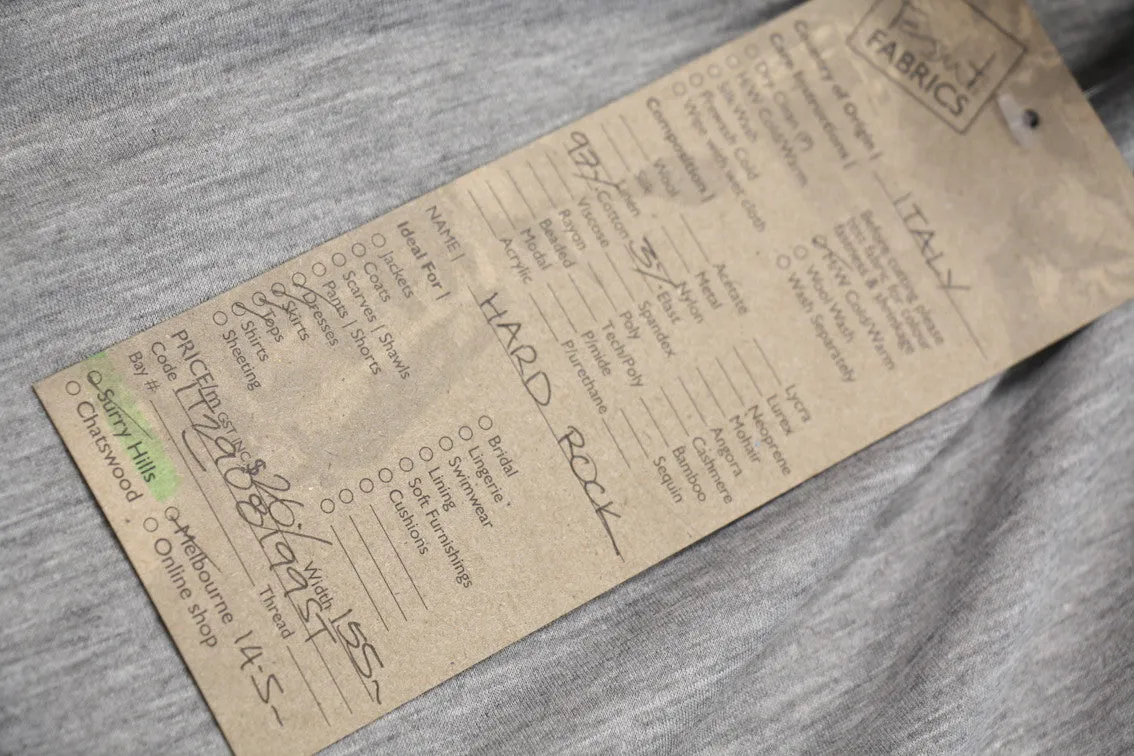 FABRICS
Country of Origin | ITALY
Care Instructions |
Dry Clean (P)
H/W Cold/Warm
Silk Wash
Prewash Cold
Wipe with wet cloth
Before cutting please
test fabric for colour
fastness & shrinkage
M/W Cold/Warm
Wool Wash
Wash Separately
Composition |
Wool
Silk
Linen
97% Cotton
Viscose
Rayon
Beaded
Modal
Acrylic
Acetate
Metal
Nylon
3% Elast
Spandex
Poly
Tech/Poly
P/mide
P/urethane
Lycra
Lurex
Neoprene
Mohair
Angora
Cashmere
Bamboo
Sequin
NAME | HARD ROCK
Ideal For |
Jackets
Coats
Scarves | Shawls
Pants | Shorts
Dresses
Skirts
Tops
Shirts
Sheeting
Bridal
Lingerie
Swimwear
Lining
Soft Furnishings
Cushions
PRICE/m GST INC $26./ Width 155~
Code
Thread
Bay #:
Surry Hills
Melbourne 14-5~
Chatswood
Online shop